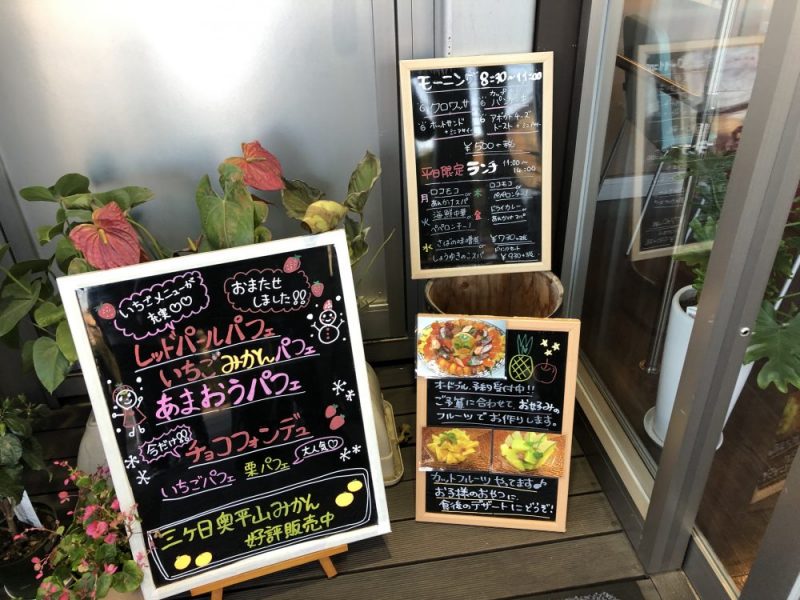 モーニング 8:30〜11:00
クロワッサン
カップパンケーキ
ホットサンド
アボカドチーズ
トースト
¥500+税
平日限定 ランチ 11:00〜14:00
月 ロコモコ
あんかけスパ
火 海鮮中華
ペペロンチーノ
水 さばの味噌煮
しょうゆきのこスパ
木 ロコモコ
ペペロンチーノ
金 ドライカレー
あんかけスパ
¥730+税
ドリンクセット
¥930+税
いちごメニューが
充実♡♡
おまたせ
しました!!
レッドパールパフェ
いちごみかんパフェ
あまおうパフェ
今だけ!!
チョコフォンデュ
大人気♡
いちごパフェ 栗パフェ
三ケ日奥平山みかん
好評販売中
オードブル予約受付中!!
ご予算に合わせて、お好みの
フルーツでお作りします。
カットフルーツ やってます♪
お子様のおやつに
食後のデザートにどうぞ!